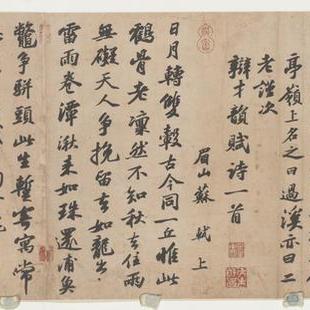 亭嶺上名之曰過溪亦曰二
老謹次
辯才韻賦詩一首
眉山蘇軾上
日月轉雙轂古今同一丘惟此
鶴骨老凜然不知秋去住兩
無礙天人爭挽留去如龍出山
雷雨卷潭湫来如珠還浦魚
鼈爭駢頭此生蹔寄寓常